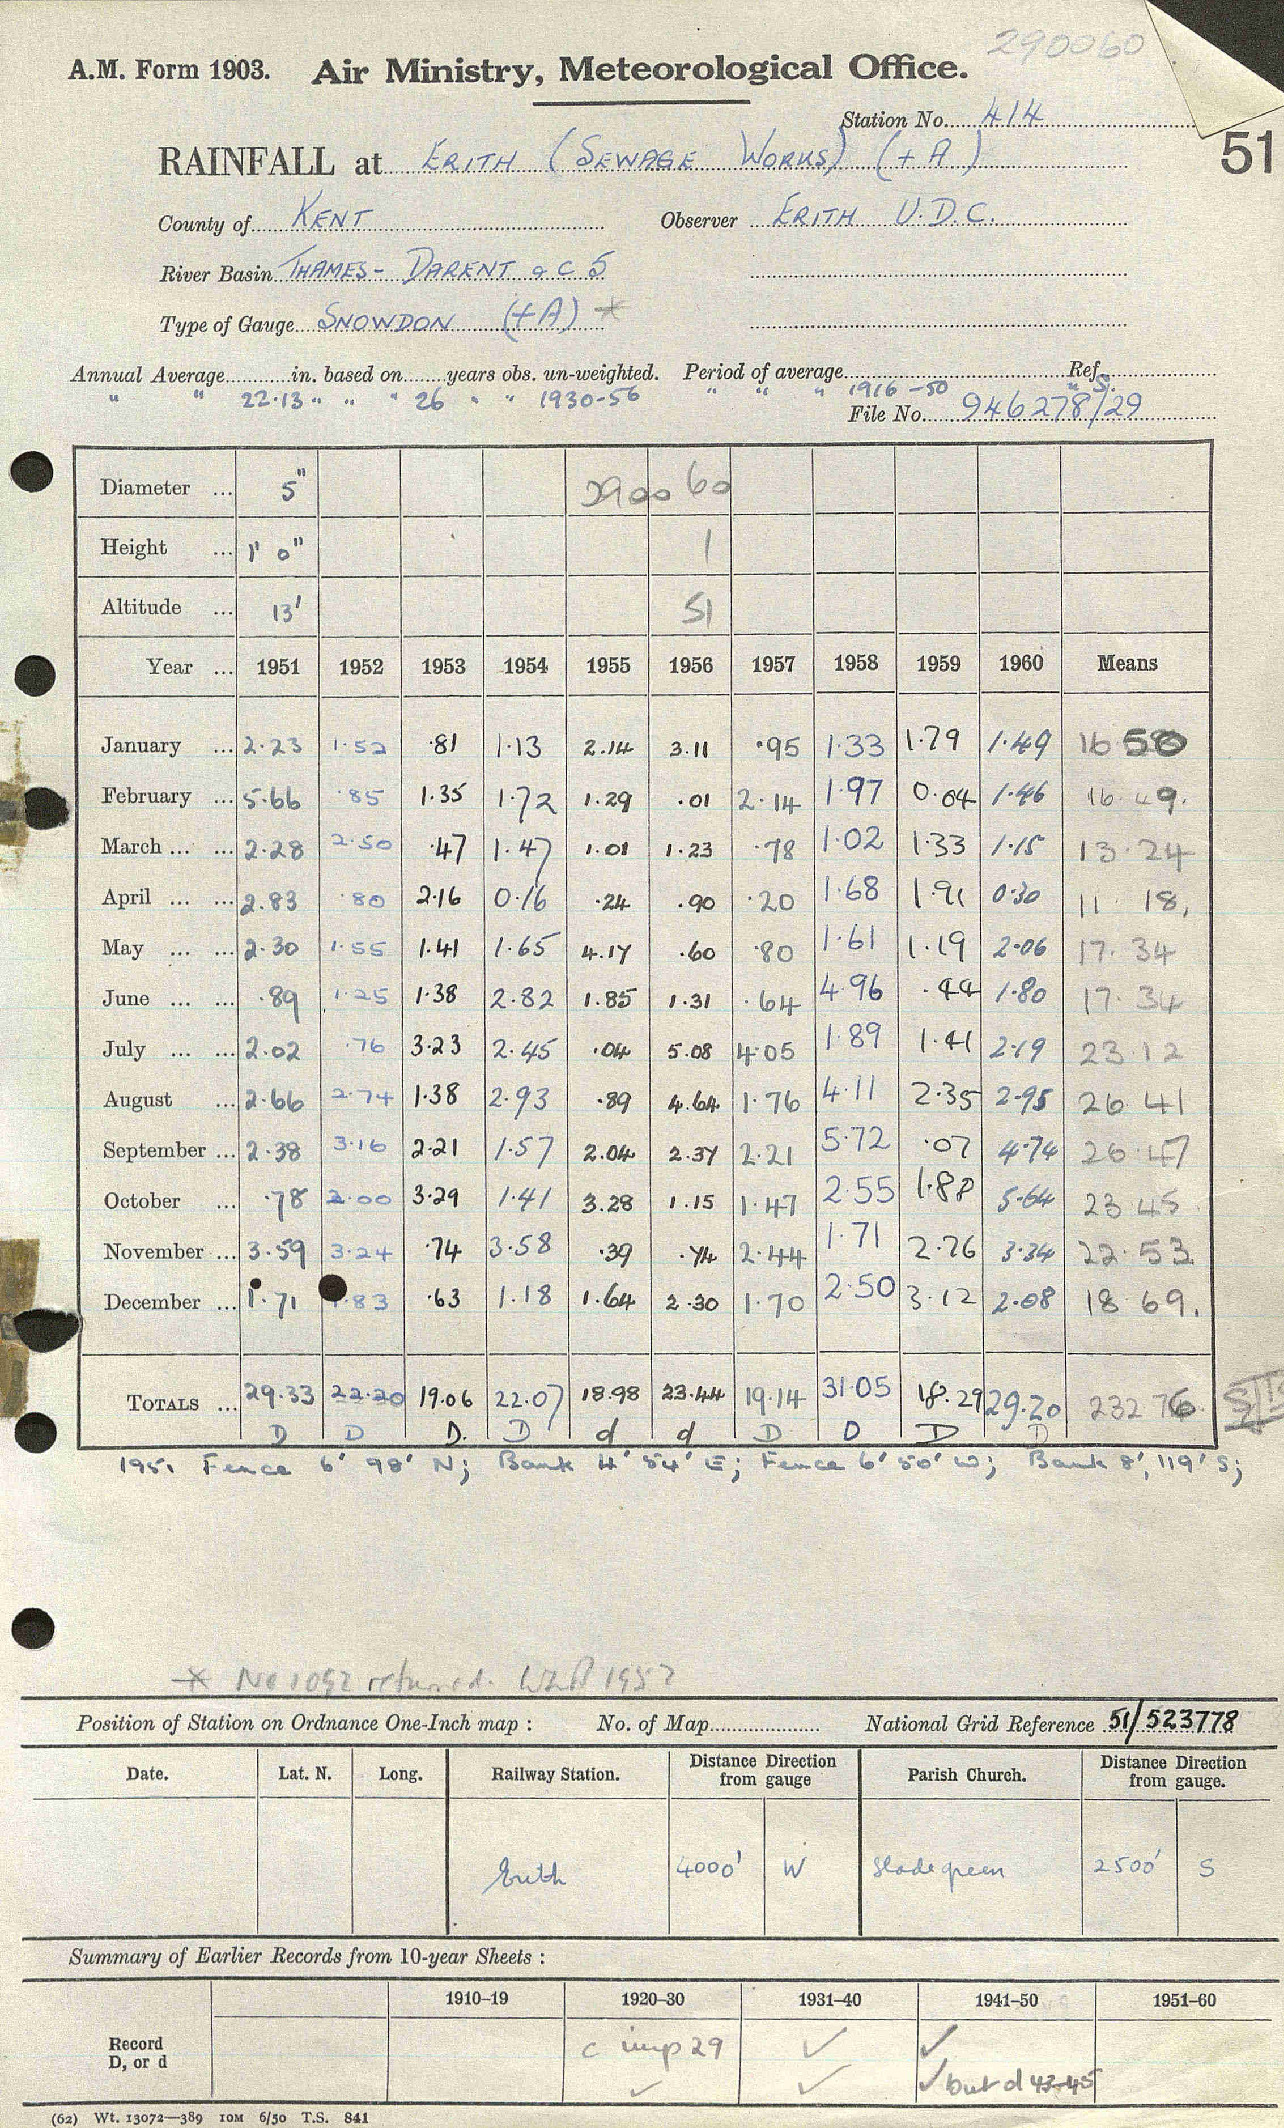 290060
A.M. Form 1903. Air Ministry, Meteorological Office.
Station No. 414
51
RAINFALL at ERITH (SEWAGE WORKS) (+A)
County of KENT Observer ERITH U.D.C.
River Basin THAMES - DARENT & C 5
Type of Gauge SNOWDON (+A) *
Annual Average in. based on years obs. un-weighted. Period of average Ref.
" " 22.13 " " " 26 " " 1930-56 " " " 1916-50 " S.
File No. 946278/29
Diameter ... 5" 2900 60
Height ... 1' 0" 1
Altitude ... 13' 51
Year ... 1951 1952 1953 1954 1955 1956 1957 1958 1959 1960 Means
January ... 2.23 1.52 .81 1.13 2.14 3.11 .95 1.33 1.79 1.49 16 50
February ... 5.66 .85 1.35 1.72 1.29 .01 2.14 1.97 0.04 1.46 16.49.
March ... ... 2.28 2.50 .47 1.47 1.01 1.23 .78 1.02 1.33 1.15 13.24
April ... ... 2.83 .80 2.16 0.16 .24 .90 .20 1.68 1.91 0.30 11 18.
May ... ... 2.30 1.55 1.41 1.65 4.17 .60 .80 1.61 1.19 2.06 17.34
June ... ... .89 1.25 1.38 2.82 1.85 1.31 .64 4.96 .44 1.80 17.34
July ... ... 2.02 .76 3.23 2.45 .04 5.08 4.05 1.89 1.41 2.19 23 12
August ... 2.66 2.74 1.38 2.93 .89 4.64 1.76 4.11 2.35 2.95 26 41
September ... 2.38 3.16 2.21 1.57 2.04 2.37 2.21 5.72 .07 4.74 26.47
October ... .78 2.00 3.29 1.41 3.28 1.15 1.47 2.55 1.88 5.64 23 45
November ... 3.59 3.24 .74 3.58 .39 .74 2.44 1.71 2.76 3.34 22.53
December ... 1.71 1.83 .63 1.18 1.64 2.30 1.70 2.50 3.12 2.08 18 69.
TOTALS ... 29.33 22.20 19.06 22.07 18.98 23.44 19.14 31.05 18.29 29.20 232 76
D D D. D d d D D D D
1951 Fence 6' 98' N; Bank 4' 54' E; Fence 6' 50' W; Bank 8', 119' S;
* No 1092 returned. 1957
Position of Station on Ordnance One-Inch map : No. of Map National Grid Reference 51/523778
Date. Lat. N. Long. Railway Station. Distance Direction from gauge Parish Church. Distance Direction from gauge.
Erith 4000' W Slade green 2500' S
Summary of Earlier Records from 10-year Sheets :
1910-19 1920-30 1931-40 1941-50 1951-60
Record D, or d c imp 29 ✓ ✓
✓ ✓ ✓ but d 43-45
(62) Wt. 13072—389 10M 6/50 T.S. 841